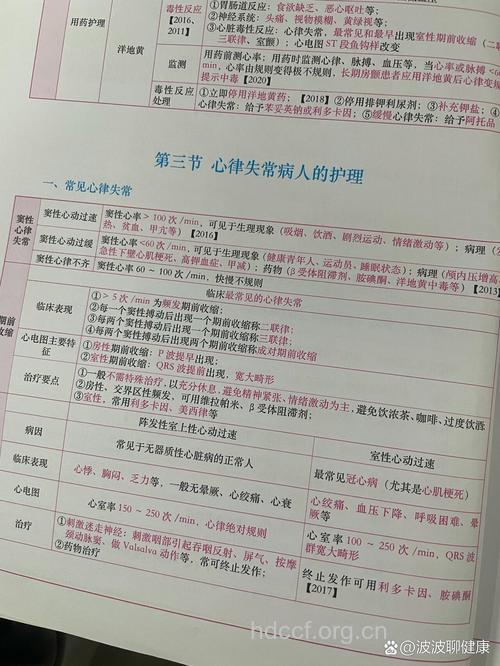 用药护理
毒性反应
【2016、
2011】
①胃肠道反应：食欲缺乏、恶心呕吐等；
②神经系统：头痛、视物模糊、黄绿视等；
③心脏毒性反应：心律失常，最常见和最早出现室性期前收缩（二
三联律、室颤）；心电图 ST 段鱼钩样改变
洋地黄
监测
用药前测心率；用药时监测心律、脉搏、血压等，当心率或脉搏<6
min，心率由规则变得极不规则、长期房颤患者应用洋地黄后心律变规
提示中毒【2020】
毒性反应
处理
①立即停用洋地黄药；【2018】②停用排钾利尿剂；③补充钾盐；④
心律失常：给予苯妥英钠或利多卡因；⑤缓慢心律失常：给予阿托品
第三节 心律失常病人的护理
一、常见心律失常
窦性
心律
失常
窦性心动过速
窦性心率>100 次/min，可见于生理现象（吸烟、饮酒、剧烈运动、情绪激动等）；病理（发
热、贫血、甲亢等）【2016】
窦性心动过缓
窦性心率<60 次/min，可见于生理现象（健康青年人、运动员、睡眠状态）；病理（颅内压增高、
急性下壁心肌梗死、高钾血症、甲减）；药物（β受体阻滞剂、胺碘酮、洋地黄中毒等）【2013】
窦性心律不齐
窦性心率 60～100 次/min，快慢不规则
期前
收缩
临床表现
临床最常见的心律失常
①>5 次/min 为频发期前收缩；
②每一个窦性搏动后出现一个期前收缩称二联律；
③每两个窦性搏动后出现一个期前收缩称三联律；
④每两个窦性搏动后出现两个期前收缩称成对期前收缩
心电图主要特
征
①房性期前收缩：P 波提早出现；
②室性期前收缩：QRS 波提前出现，宽大畸形
治疗要点
①一般不需特殊治疗，以充分休息，避免精神紧张、情绪激动为主，避免饮浓茶、咖啡、过度饮酒
②房性、交界区性频发，可用维拉帕米、β受体阻滞剂；
③室性，常用利多卡因、美西律等
阵发性室上性心动过速
室性心动过速
病因
常见于无器质性心脏病的正常人
最常见冠心病（尤其是心肌梗死）
临床表现
心悸、胸闷、乏力等，一般无晕厥、心绞痛、心衰
心绞痛、血压下降、呼吸困难、晕
厥等
心电图
心室率 150～250 次/min，心律绝对规则
心室率 100～250 次/min，QRS 波
群宽大畸形
治疗
①刺激迷走神经：刺激咽部引起吞咽反射、屏气、按摩
颈动脉窦、做 Valsalva 动作等，常可终止发作；
②药物治疗
终止发作可用利多卡因、胺碘酮
【2017】
hdccf.org.cn
@波波聊健康